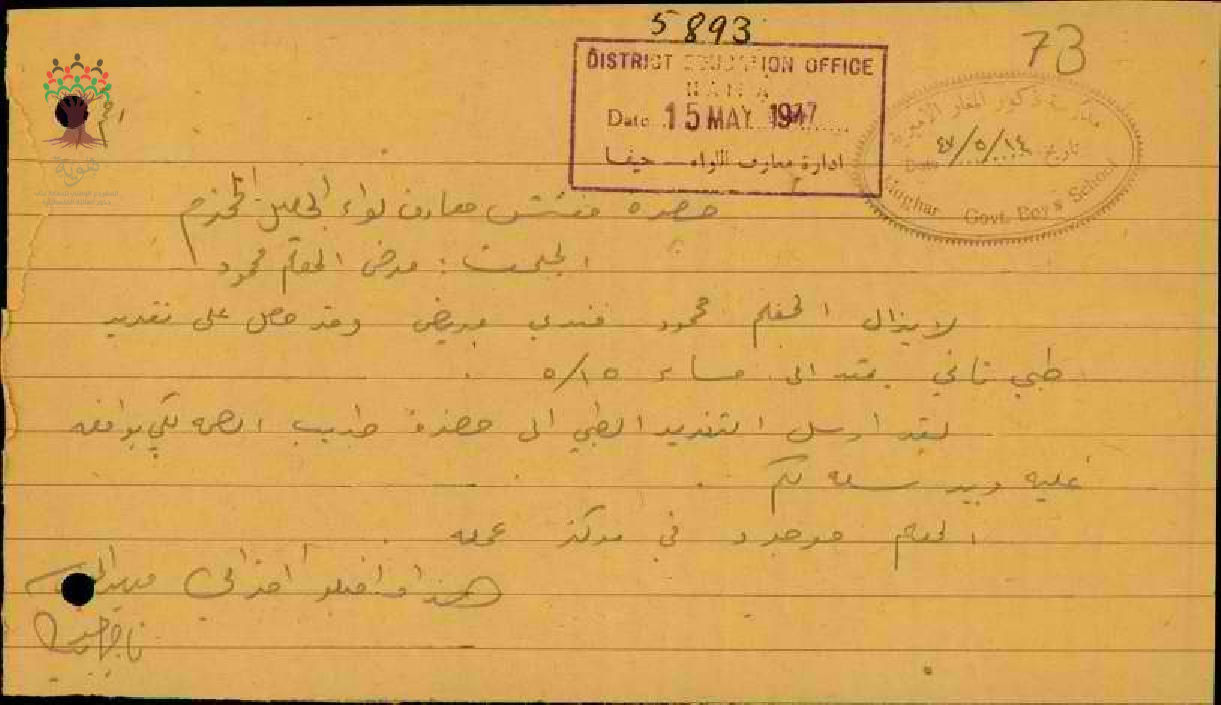 5893
73
DISTRICT EDUCATION OFFICE
HAIFA
Date 15 MAY 1947
ادارة معارف اللواء - حيفا
مدرسة ذكور المغار الاميرية
تاريخ ٤٧/٥/١٤ Date
Moghar Govt. Boy's School
هوية
حضرة مفتش معارف لواء الجليل المحترم
المبحث : مرض المعلم محمود
لا يزال المعلم محمود فندي مريض وقد حصل على تقرير
طبي ثاني يمتد الى مساء ٥/١٥
لقد ارسل التقرير الطبي الى حضرة طبيب الصحة لكي يوافق
عليه ويرسله لكم
المعلم موجود في مركز عمله
هذا واقبلوا احترامي